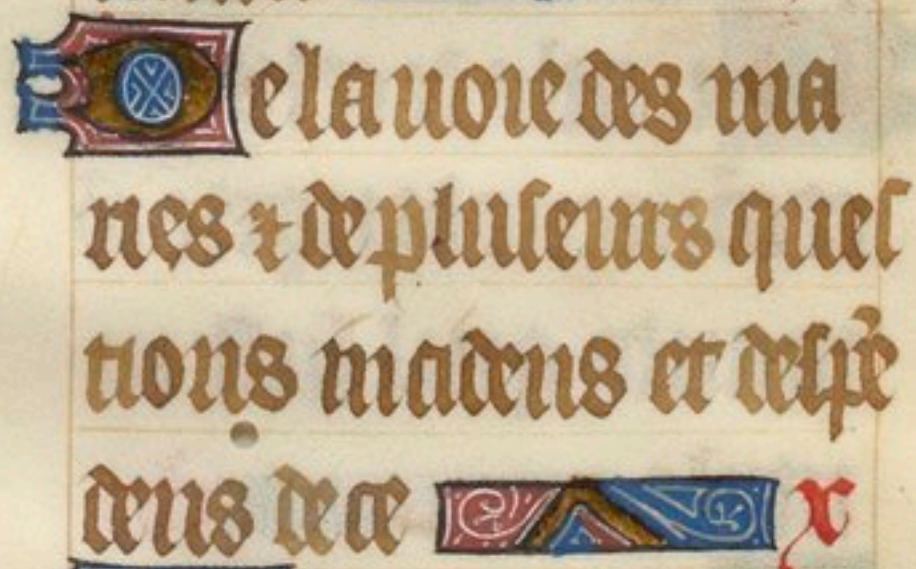 De la uoie des ma
ries ⁊ de pluſeurs queſ
tions incidens et deſpẽ
dens de ce x